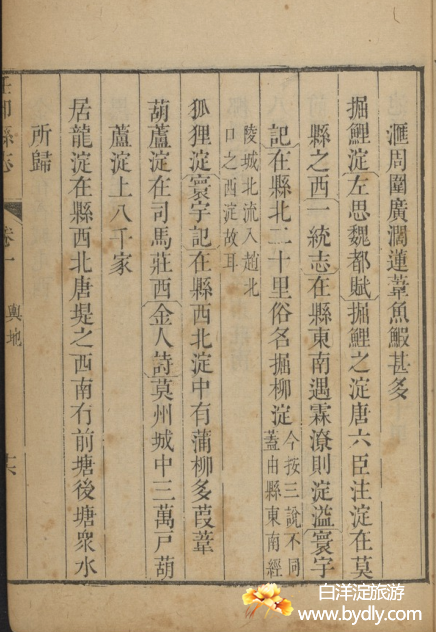 滙周圍廣濶蓮葦魚鰕甚多
掘鯉淀左思魏都賦掘鯉之淀唐六臣注淀在莫
縣之西一統志在縣東南遇霖潦則淀溢寰宇
記在縣北二十里俗名掘柳淀今按三說不同
蓋由縣東南經
陵城北流入趙北
口之西淀故耳
狐狸淀寰宇記在縣西北淀中有蒲柳多葭葦
葫蘆淀在司馬莊西金人詩莫州城中三萬戸葫
蘆淀上八千家
居龍淀在縣西北唐堤之西南有前塘後塘衆水
所歸
縣志
卷一
輿地
白洋淀旅游
www.bydly.com